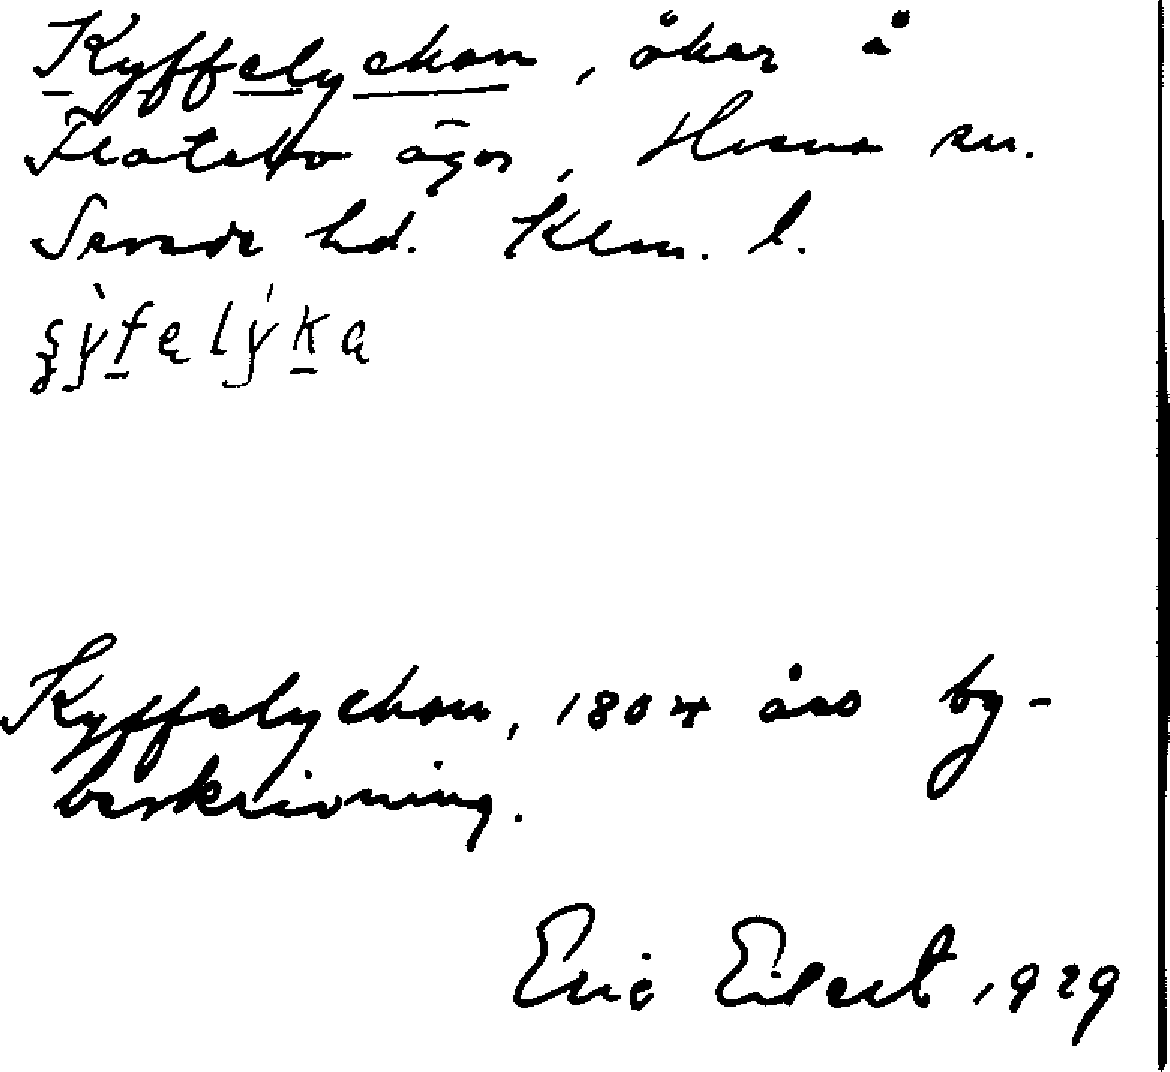 Kyffelyckan, åker å
Flatebo ägor, Hvena sn.
Sevede hd. Klm. l.
Kyffelyckan, 1804 års by-
beskrivning.
Eric Eilert 1929